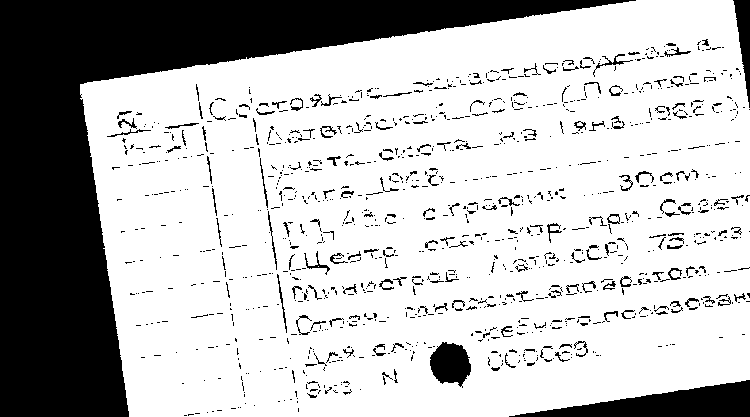 Состояние животноводства в
Латвийской ССР (По итогам
учета скота на 1 янв. 1968 г)
Рига, 1968.
[1], 43 с. с график 30 см.
(Центр. стат. упр. при Совете
Министров Латв. ССР) 75 экз.
Отпеч. множит. аппаратом
Для служебного пользования
Экз. N 000068.